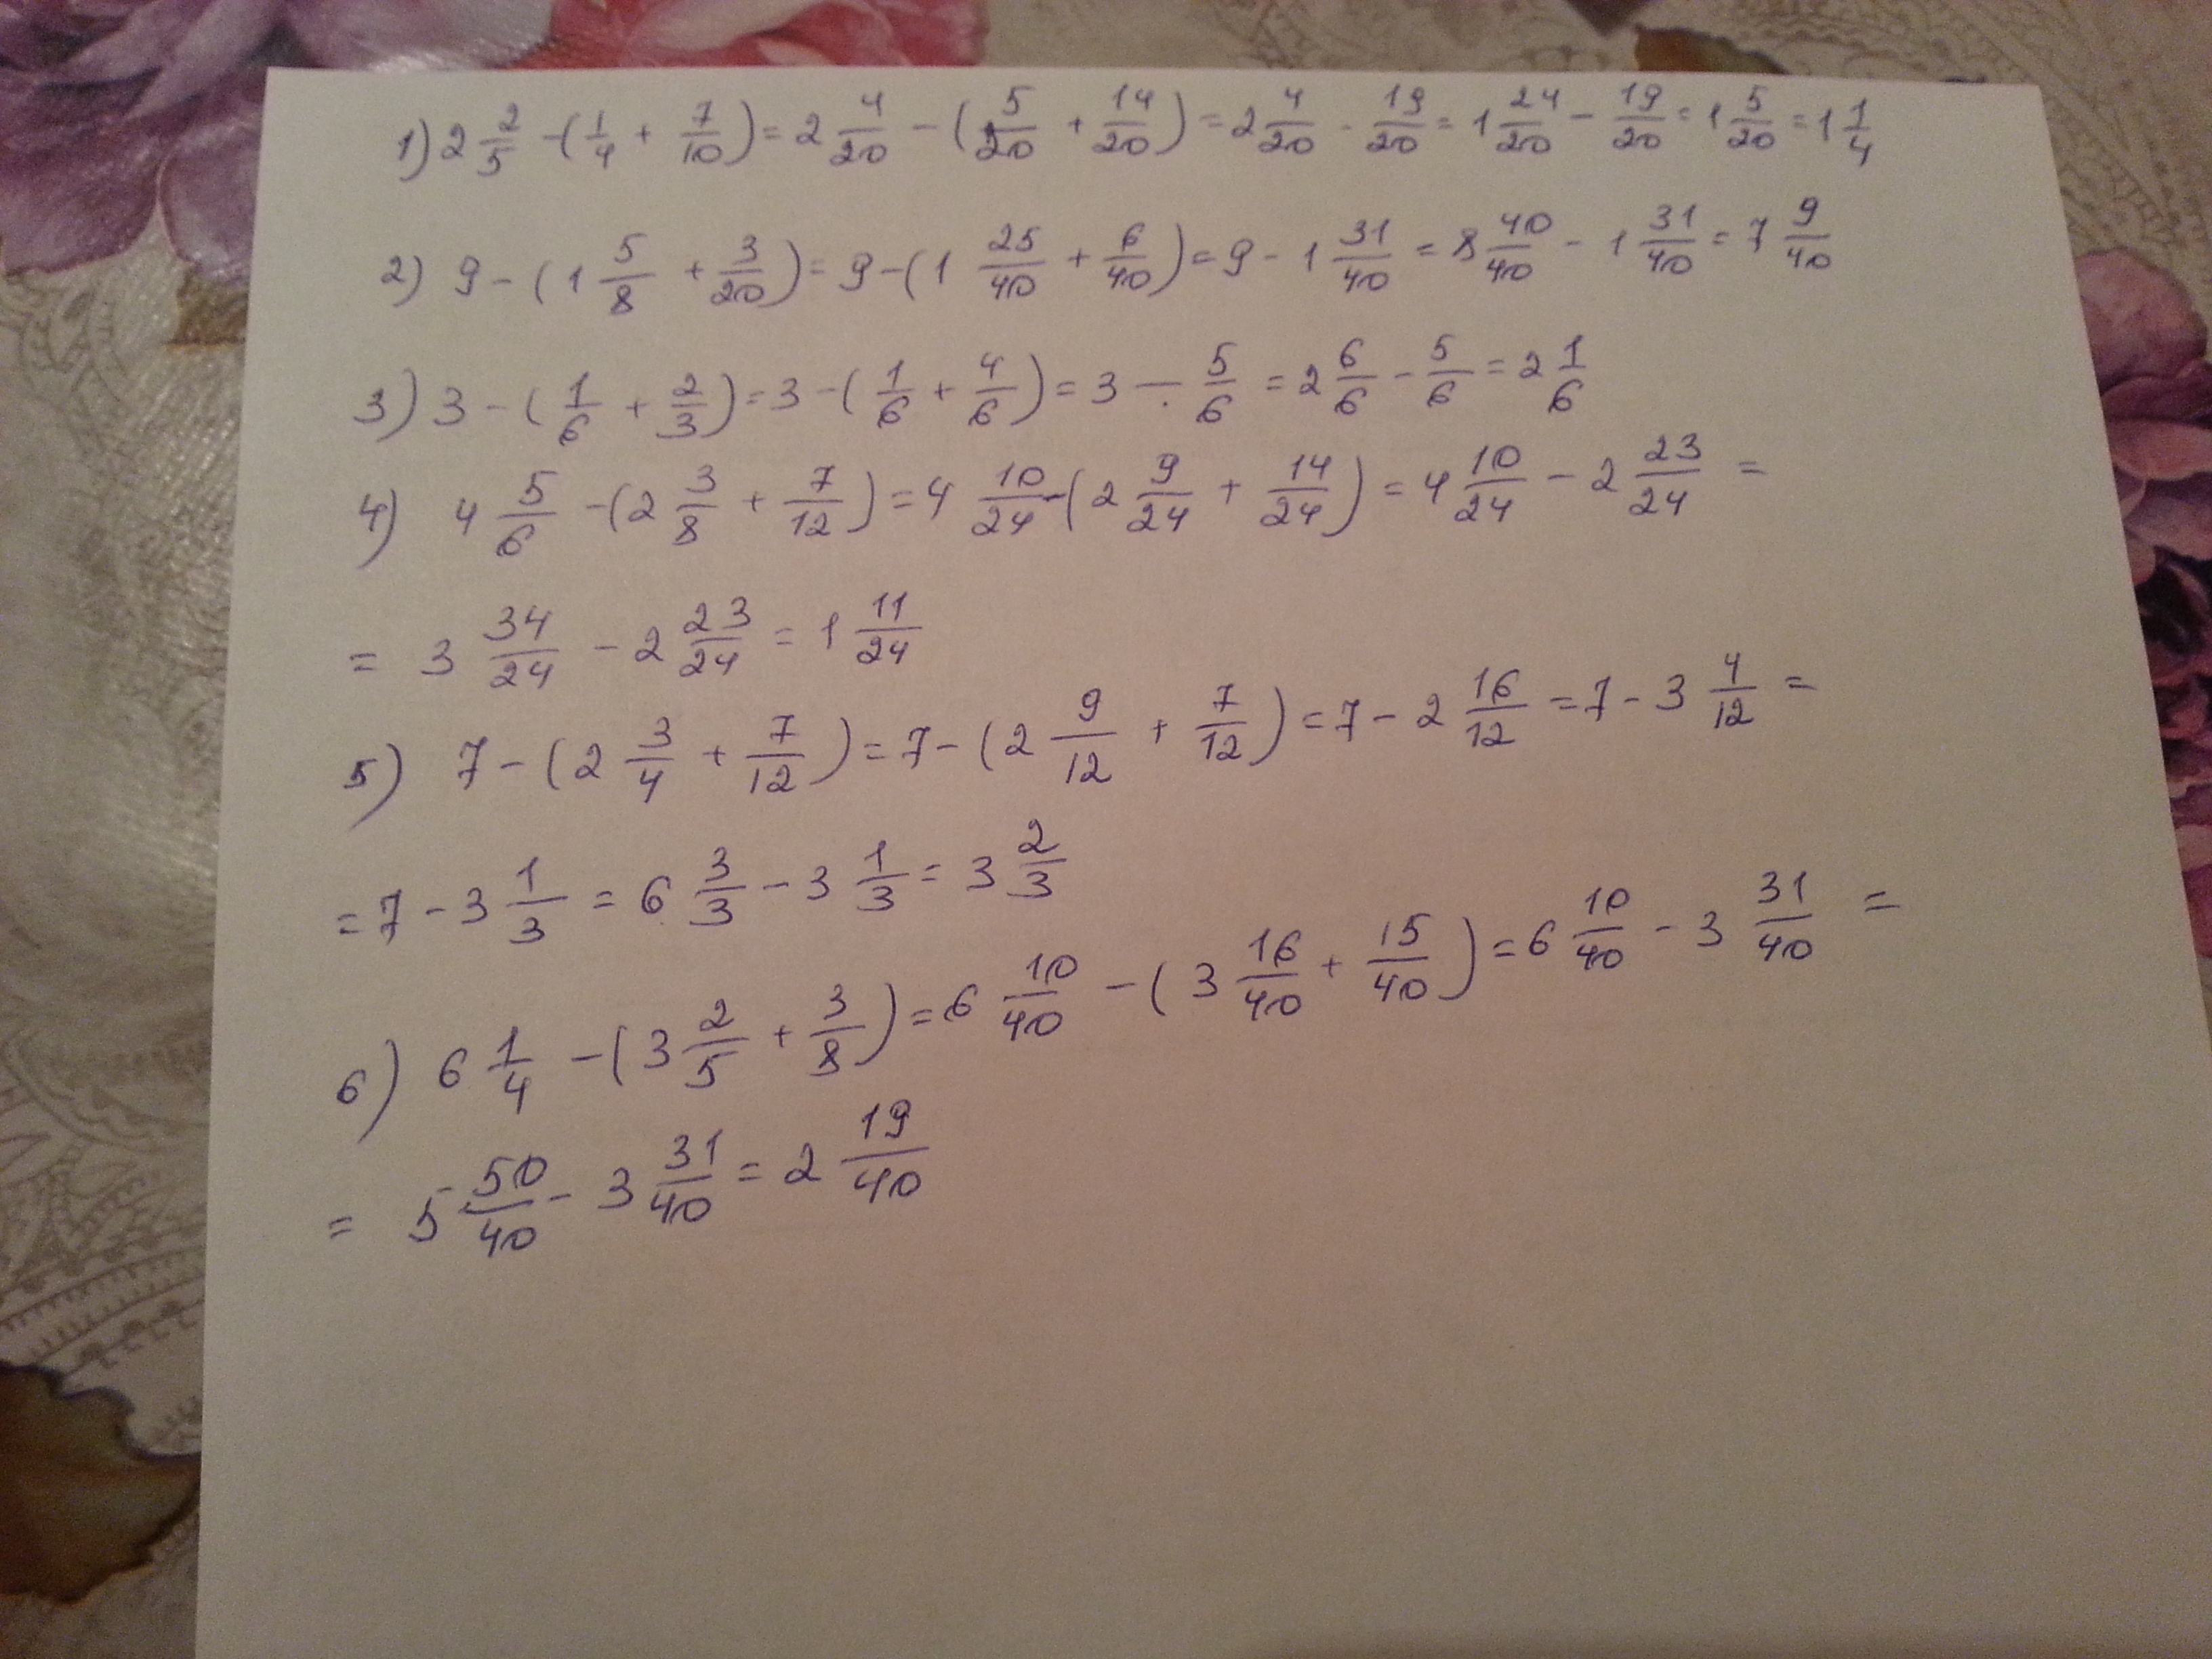 1) 2 2/5 - (1/4 + 7/10) = 2 4/20 - (5/20 + 14/20) = 2 4/20 - 19/20 = 1 24/20 - 19/20 = 1 5/20 = 1 1/4
2) 9 - (1 5/8 + 3/20) = 9 - (1 25/40 + 6/40) = 9 - 1 31/40 = 8 40/40 - 1 31/40 = 7 9/40
3) 3 - (1/6 + 2/3) = 3 - (1/6 + 4/6) = 3 - 5/6 = 2 6/6 - 5/6 = 2 1/6
4) 4 5/6 - (2 3/8 + 7/12) = 4 10/24 - (2 9/24 + 14/24) = 4 10/24 - 2 23/24 =
= 3 34/24 - 2 23/24 = 1 11/24
5) 7 - (2 3/4 + 7/12) = 7 - (2 9/12 + 7/12) = 7 - 2 16/12 = 7 - 3 4/12 =
= 7 - 3 1/3 = 6 3/3 - 3 1/3 = 3 2/3
6) 6 1/4 - (3 2/5 + 3/8) = 6 10/40 - (3 16/40 + 15/40) = 6 10/40 - 3 31/40 =
= 5 50/40 - 3 31/40 = 2 19/40